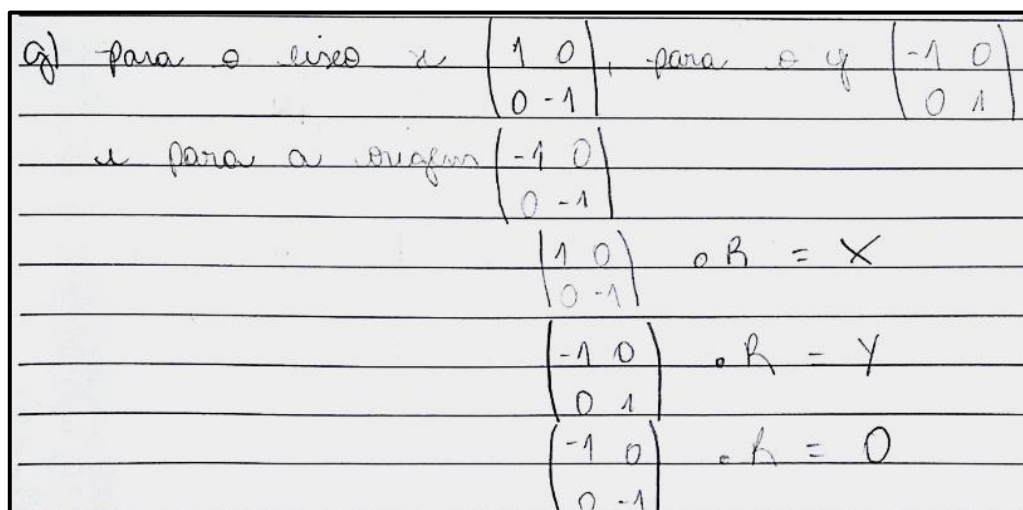 g) para o eixo x (1 0 / 0 -1), para o y (-1 0 / 0 1)
e para a origem (-1 0 / 0 -1)
(1 0 / 0 -1) . R = X
(-1 0 / 0 1) . R = Y
(-1 0 / 0 -1) . R = O